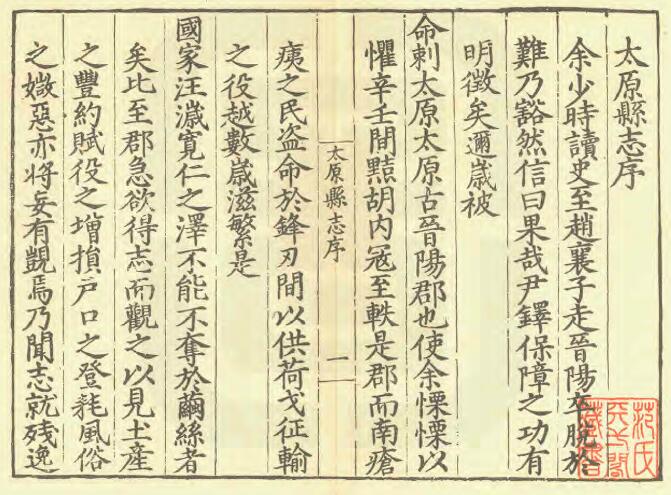 太原縣志序
余少時讀史至趙襄子走晉陽卒脫於
難乃豁然信曰果哉尹鐸保障之功有
明徵矣邇歲被
命刺太原太原古晉陽郡也使余慄慄以
懼辛壬間黠胡內寇至軼是郡而南瘡
太原縣志序 一
痍之民盗命於鋒刃間以供荷戈征輸
之役越數歲滋繁是
國家汪濊寬仁之澤不能不奪於繭絲者
矣比至郡急欲得志而觀之以見土產
之豐約賦役之增損戶口之登耗風俗
之媺惡亦將妄有覬焉乃聞志就殘逸
范氏天一閣藏書